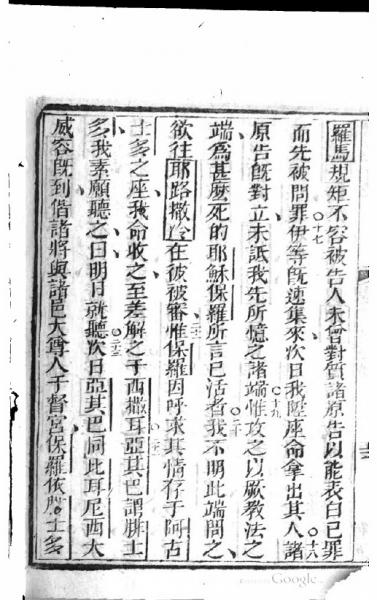 羅馬規矩不容被告人未曾對質諸原告以能表白己罪
○十七 ○十八
而先被問罪伊等既速集來次日我陞座命拿出其人諸
原告既對立未詆我先所憶之諸端惟攻之以厥教法之
○十九
端爲甚麼死的耶穌保羅所言已活者我不明此端問之
○二十
欲往耶路撒冷在彼被審惟保羅因呼求其情存于阿古
○二一
士多之座我命收之至差解之于西撒耳亞其巴謂腓士
○二二
多我素願聽之曰明日就聽次日亞其巴同比耳尼西大
○二三
威容既到偕諸將與諸邑大尊人于督宮保羅依腓士多
Google